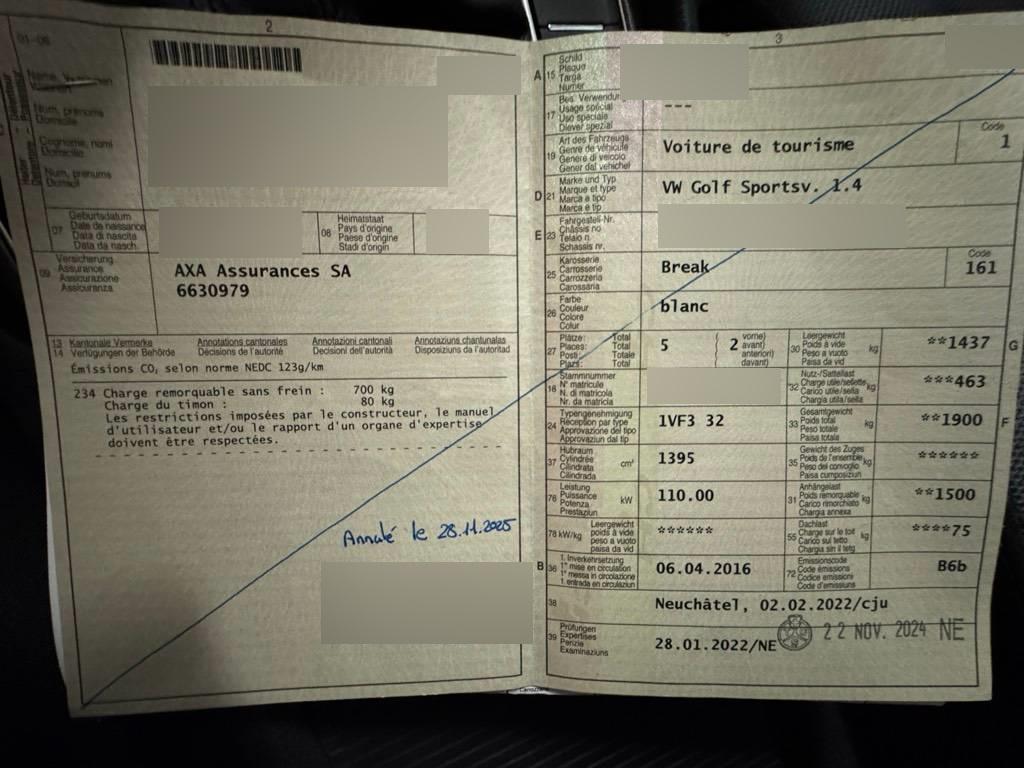 2
01-06
Name, Vornamen
Wohnort
Nom, prénoms
Domicile
Cognome, nomi
Domicilio
Num, prenums
Domicil
07
Geburtsdatum
Date de naissance
Data di nascita
Data da nasch.
08
Heimatstaat
Pays d'origine
Paese d'origine
Stadi d'origin
09
Versicherung
Assurance
Assicurazione
Assicuranza
AXA Assurances SA
6630979
13 Kantonale Vermerke Annotations cantonales Annotazioni cantonali Annotaziuns chantunalas
14 Verfügungen der Behörde Décisions de l'autorité Decisioni dell'autorità Disposiziuns da l'autoritad
Émissions CO, selon norme NEDC 123g/km
234 Charge remorquable sans frein : 700 kg
Charge du timon : 80 kg
Les restrictions imposées par le constructeur, le manuel
d'utilisateur et/ou le rapport d'un organe d'expertise
doivent être respectées.
Annulé le 28.11.2025
3
A 15
Schild
Plaque
Targa
Numer
17
Bes. Verwendung
Usage spécial
Uso speciale
Diever spezial
---
19
Art des Fahrzeugs
Genre de véhicule
Genere di veicolo
Gener dal vehichel
Voiture de tourisme
Code
1
D 21
Marke und Typ
Marque et type
Marca e tipo
Marca e tip
VW Golf Sportsv. 1.4
E 23
Fahrgestell-Nr.
Châssis no
Telaio n.
Schassis nr.
25
Karosserie
Carrosserie
Carrozzeria
Carossaria
Break
Code
161
26
Farbe
Couleur
Colore
Colur
blanc
27
Plätze: Total
Places: Total
Posti: Totale
Plazs: Total
5
( 2 vorne)
avant)
anteriori)
davant)
30
Leergewicht
Poids à vide
Peso a vuoto
Paisa da vid
kg
**1437
G
18
Stammnummer
N° matricule
N. di matricola
Nr. da matricla
32
Nutz-/Sattellast
Charge utile/sellette
Carico utile/sella
Chargia utila/sella
kg
***463
24
Typengenehmigung
Réception par type
Approvazione del tipo
Approvaziun dal tip
1VF3 32
33
Gesamtgewicht
Poids total
Peso totale
Paisa totala
kg
**1900
F
37
Hubraum
Cylindrée
Cilindrata
Cilindrada
cm³
1395
35
Gewicht des Zuges
Poids de l'ensemble
Peso del convoglio
Paisa cumposiziun
kg
******
76
Leistung
Puissance
Potenza
Prestaziun
kW
110.00
31
Anhängelast
Poids remorquable
Carico rimorchiato
Chargia annexa
kg
**1500
78 kW/kg
Leergewicht
poids à vide
peso a vuoto
paisa da vid
******
55
Dachlast
Charge sur le toit
Carico sul tetto
Chargia sin il tetg
kg
****75
B 36
1. Inverkehrsetzung
1re mise en circulation
1a messa in circolazione
1. entrada en circulaziun
06.04.2016
72
Emissionscode
Code émissions
Codice emissioni
Code d'emissiuns
B6b
38
Neuchâtel, 02.02.2022/cju
39
Prüfungen
Expertises
Perizie
Examinaziuns
28.01.2022/NE
22 NOV. 2024 NE